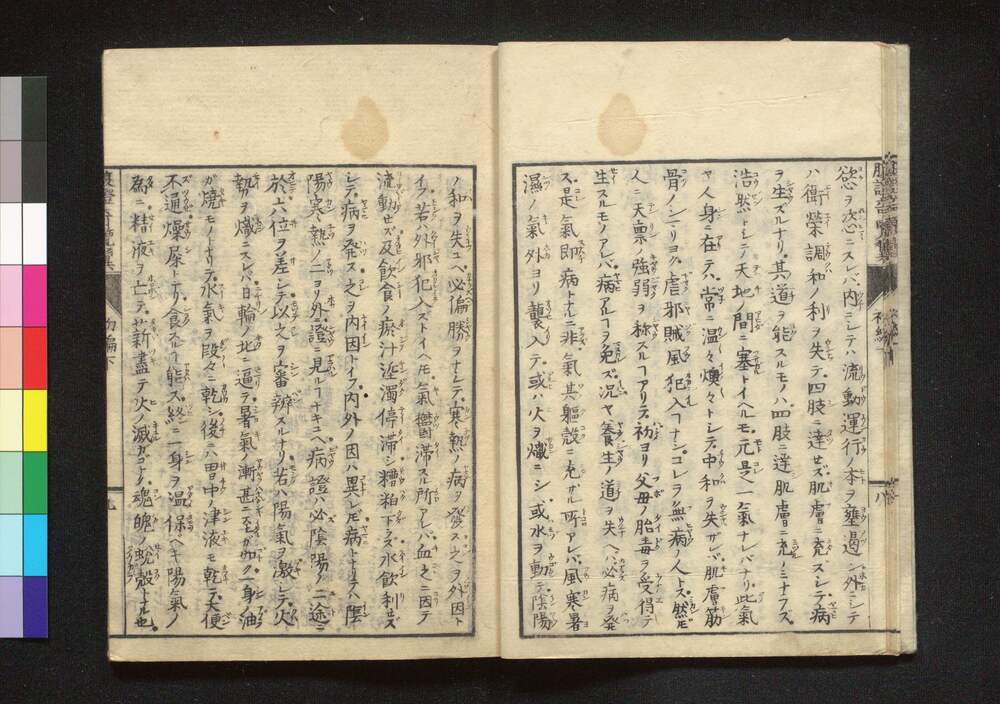 慾ヲ恣ニスレバ内ニシテハ流動運行ノ本ヲ壅遏シ外ニシテ
ハ衛榮調和ノ利ヲ失テ四肢ニ達セズ肌膚ニ充スシテ病
ヲ生ズルナリ其道ヲ能スルモノハ四肢ニ達肌膚ニ充ノミナラズ
浩然トシテ天地ノ間ニ塞トイヘルモ元是一氣ナレバナリ此氣
ヤ人身ニ在テハ常ニ温々煗々トシテ中和ヲ失ザレバ肌膚筋
骨ノシマリヨク虐邪賊風犯入ヿナシコレヲ無病ノ人トス然𪜈
人ニ天禀強弱ヲ極スルヿアリテ初ヨリ父母ノ胎毒ヲ受得テ
生スルモノアレバ病アルヿヲ免ズ況ヤ養生ノ道ヲ失ヘバ必病ヲ発
ス是氣即病トナルニ非氣其軀殻ニ充ザル所アレバ風寒暑
濕ノ氣外ヨリ襲入テ或ハ火ヲ熾ニシ或水ヲ動テ陰陽
ノ和ヲ失ユヘ必偏勝ヲナシテ寒熱ノ病ヲ發ス之ヲ外因ト
イフ若ハ外邪犯入ストイヘ𪜈氣鬱滞スル所アレバ血之ニ因テ
流動セズ及飲食ノ瘀汁垽濁停滞シ糟粕下ラズ水飲利セズ
シテ病ヲ発ス之ヲ内因トイフ内外ノ因ハ異レ𪜈病トナルユヘハ陰
陽寒熱ノ二ヨリ外證ニ見ルヿナキユヘ病證ハ必陰陽ノ二途ニ
於六位ヲ差シテ以之ヲ審辨スルナリ若ハ陽氣ヲ激シテ火
勢ヲ熾ニスレバ日輪ノ北ニ逼テ暑氣ノ漸甚ニ至ガ如ク一身ノ油
ガ焼モノトナリテ水氣ヲ段々ニ乾シ後ニハ胃中ノ津液モ乾テ大便
不通燥屎トナリ食スルヿ能ズ終ニ一身ヲ温保ヘキ陽氣ノ
為ニ精液ヲ亡テ薪盡テ火ノ滅カゴトク魂魄ノ蛻殻トナル也
初編下
八
九